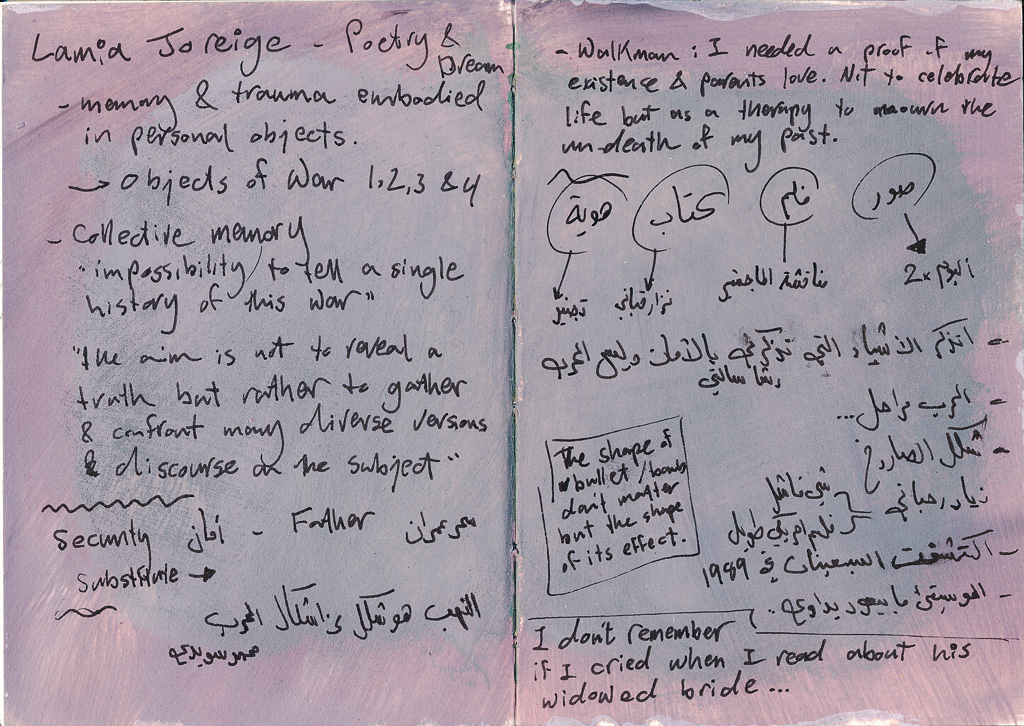 Lamia Joreige - Poetry &
Dream
- memory & trauma embodied
in personal objects.
→ Objects of War 1,2,3 & 4
- Collective memory
"impossibility to tell a single
history of this war"
"the aim is not to reveal a
truth but rather to gather
& confront many diverse versions
& discourse on the subject"
Security أمان - Father سحر عمران
Substitute →
النهب هو شكل من اشكال الحرب
- Walkman: I needed a proof of my
existence & parents love. Not to celebrate
life but as a therapy to mourn the
un-death of my past.
صور فلم كتاب هوية
البوم x2 نزار قباني
- اتذكر الاشياء التي تذكرني بالأمان وليس الحرب
رشا سالتي
- الحرب مراحل...
- شكل الصاروخ
زياد رحباني شي فاشل
فلم اميركي طويل
- اكتشفت السبعينات في 1989
- الموسيقى ما بيعود يداوي..
The shape of
bullet/bomb
don't matter
but the shape
of its effect.
I don't remember
if I cried when I read about his
widowed bride...